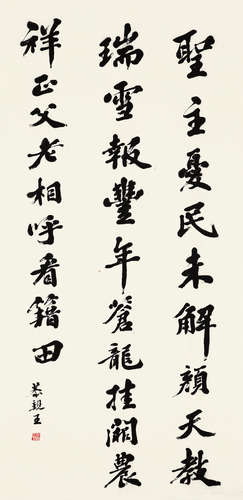 聖主憂民未解顔天教
瑞雪報豐年蒼龍挂闕農
祥正父老相呼看籍田
恭親王